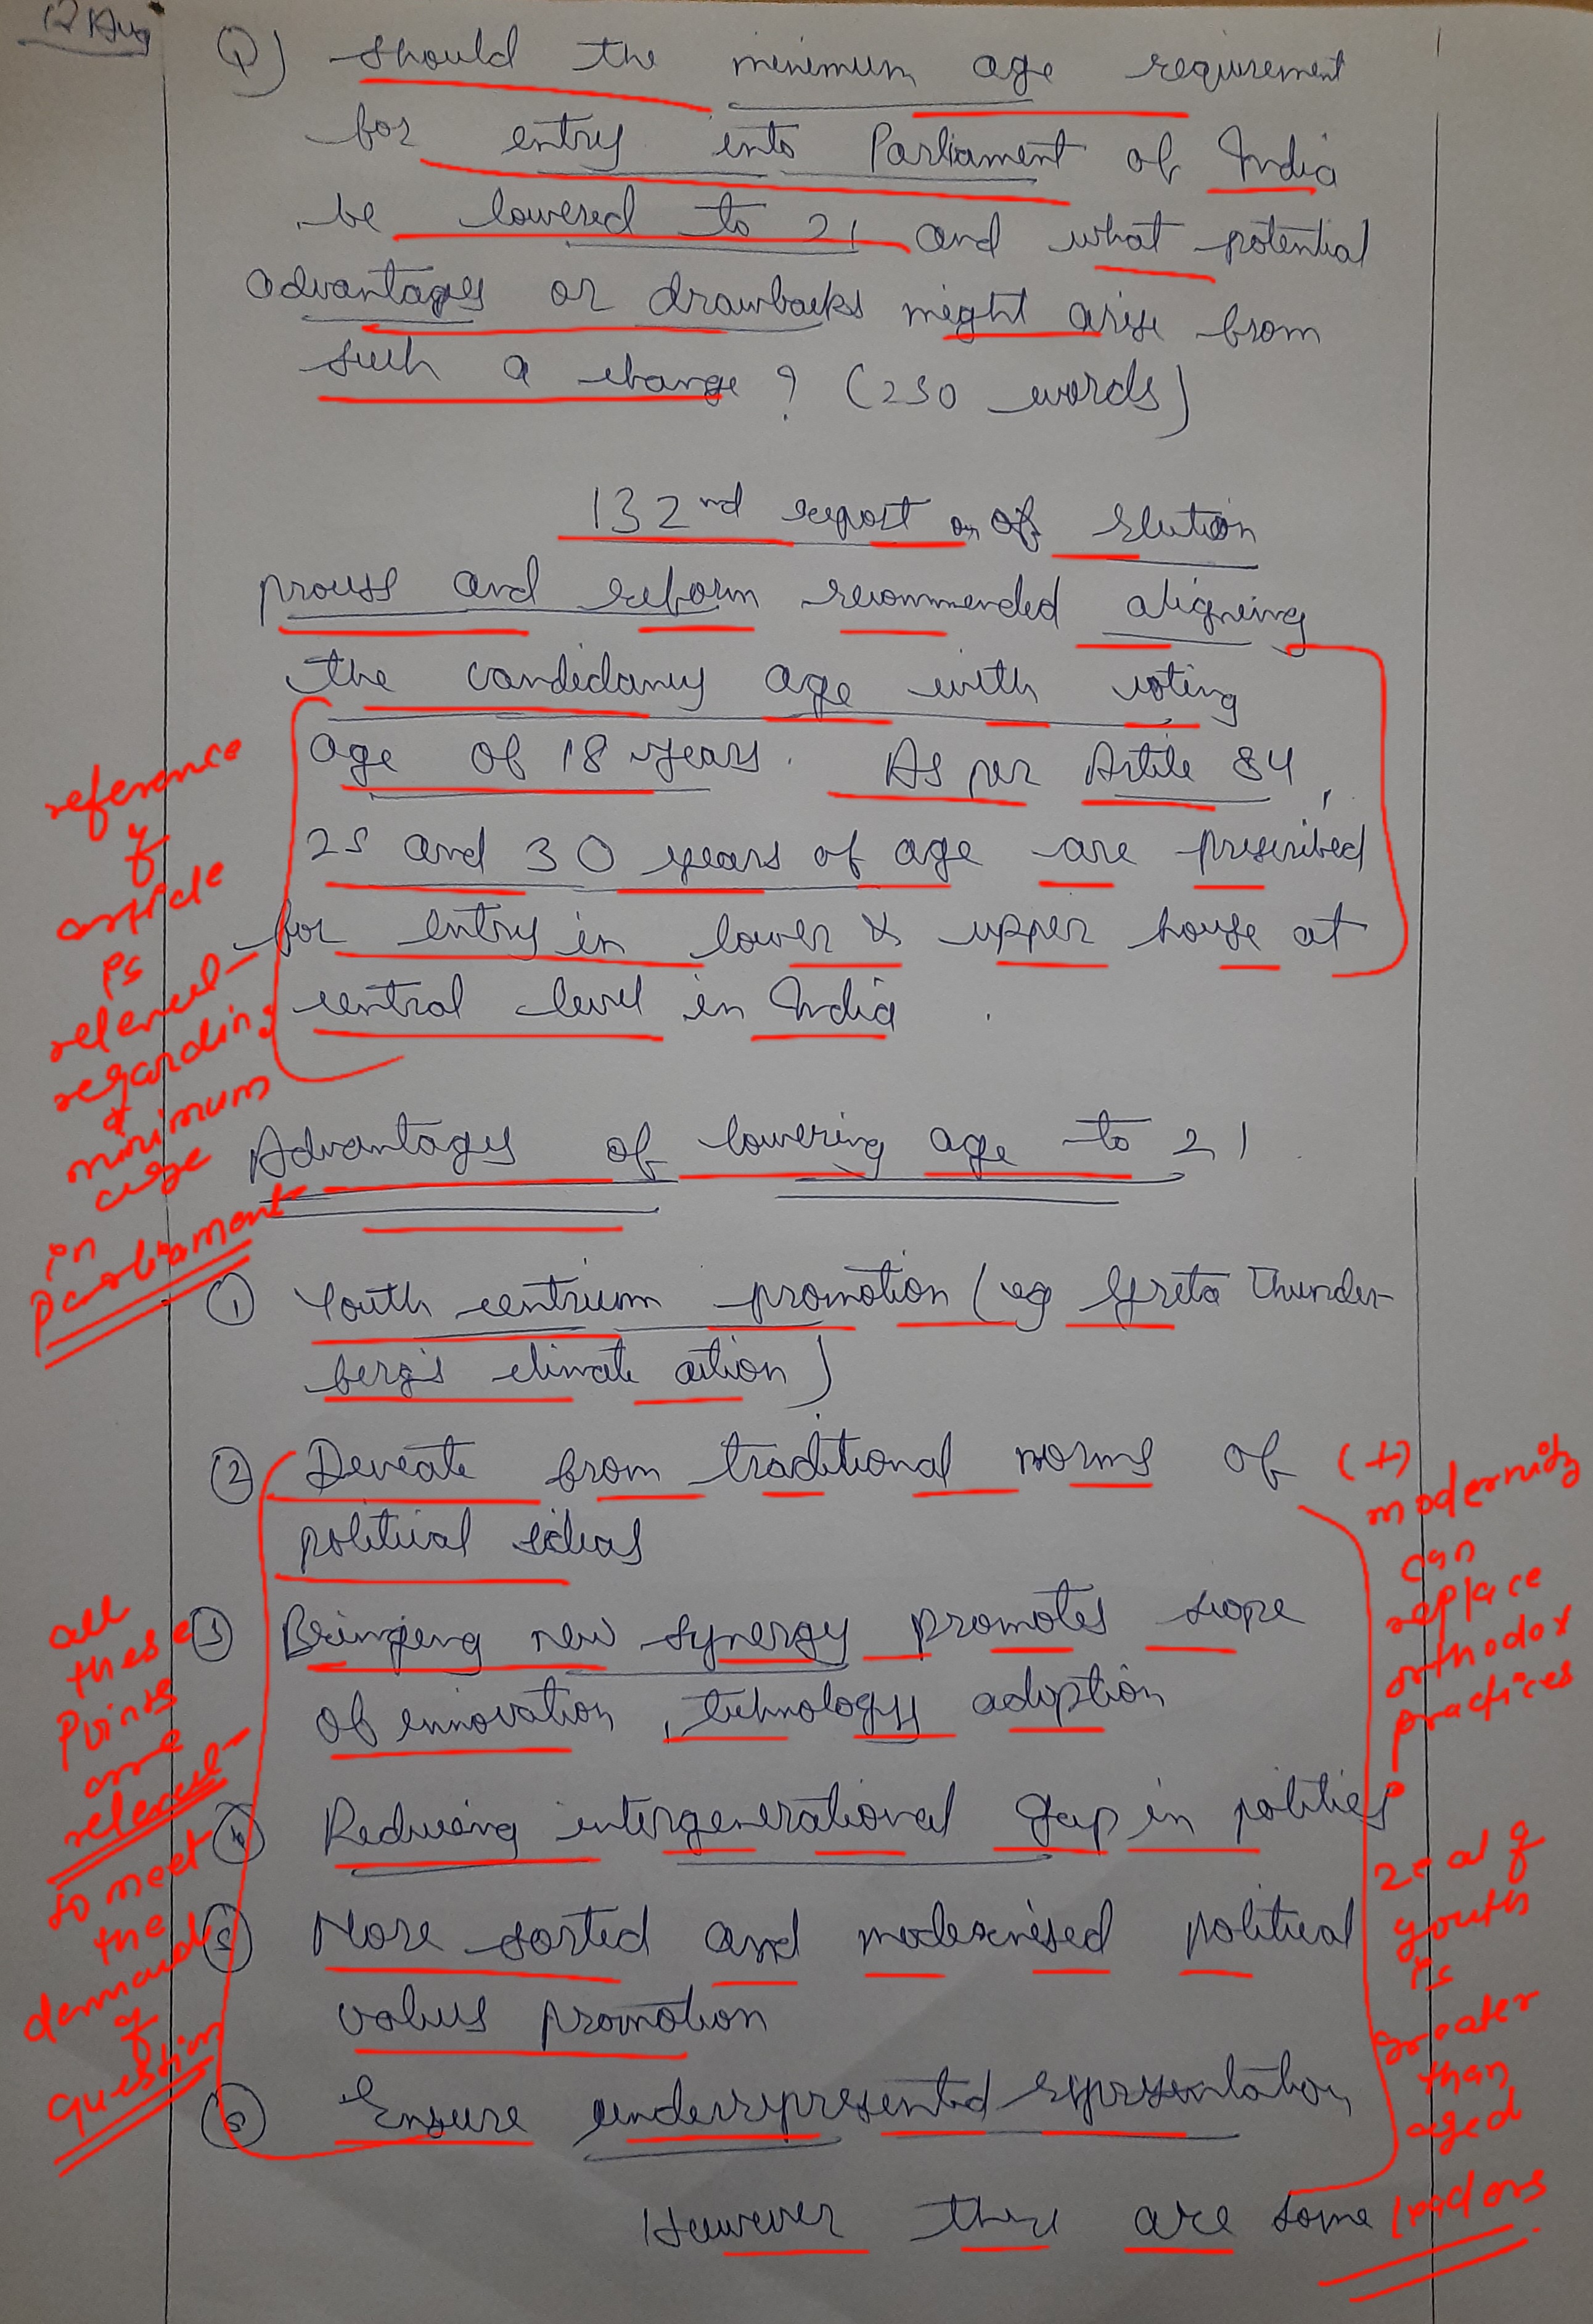 12 Aug
Q) Should the minimum age requirement
for entry into Parliament of India
be lowered to 21 and what potential
advantages or drawbacks might arise from
such a change? (250 words)
132nd report on of Election
process and reform recommended aligning
the candidancy age with voting
age of 18 years. As per Article 84,
25 and 30 years of age are prescribed
for entry in lower & upper house at
central level in India.
reference
of
article
is
relevent
regarding
minimum
age
in
Parliament
Advantages of lowering age to 21.
① Youth centrism promotion (eg Greta Thunder-
berg's climate action)
② Deveate from traditional norms of
political ideas
③ Bringing new synergy promotes scope
of innovation, technology adoption
④ Reducing intergenerational gap in politics
⑤ More sorted and modernised political
values promotion
⑥ Ensure underrepresented representation
However there are some
all
these
points
are
relevent
to meet
the
demand
of
question
(+)
modernity
can
replace
orthodox
practices
zeal of
youth
is
greater
than
aged
leaders